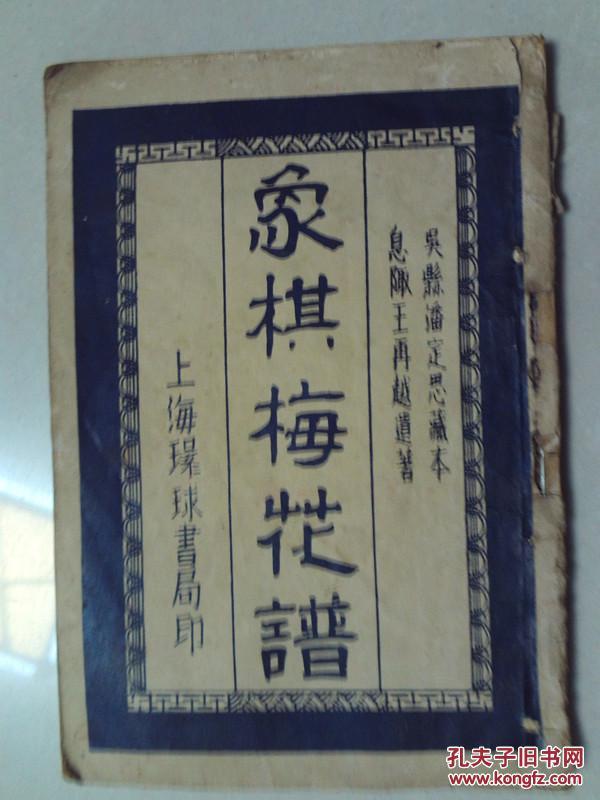 吳縣潘定思藏本
息陬王再越遺著
象棋梅花譜
上海環球書局印
孔夫子旧书网
www.kongfz.com